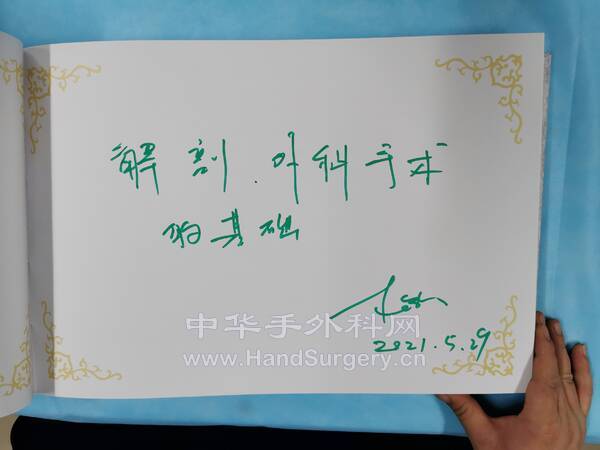 解剖.外科手术
的基础
中华手外科网
2021.5.29
www.HandSurgery.cn